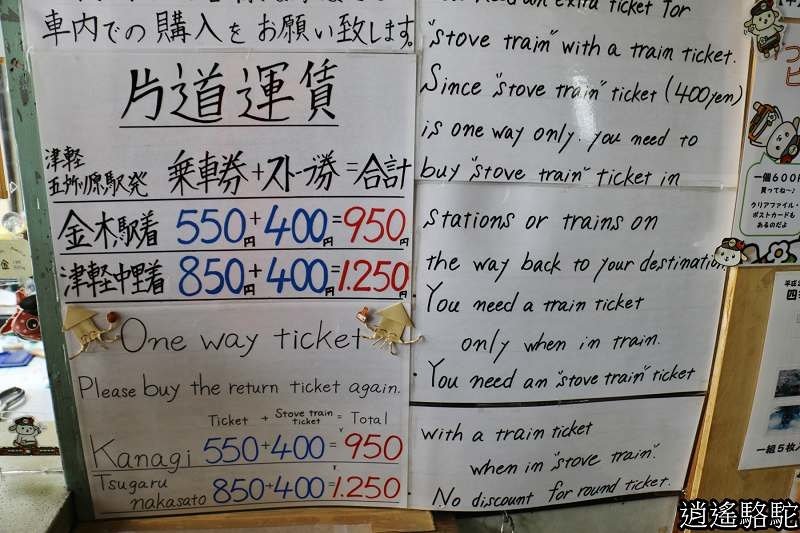 車内での購入をお願い致します。
片道運賃
津軽
五所川原駅発 乗車券+ストーブ券=合計
金木駅着 550円+400円=950円
津軽中里着 850円+400円=1.250円
One way ticket
Please buy the return ticket again.
Ticket + Stove train ticket = Total
Kanagi 550+400=950
Tsugaru
nakasato 850+400=1.250
an extra ticket for
"stove train" with a train ticket.
Since "stove train" ticket (400yen)
is one way only. you need to
buy "stove train" ticket in
stations or trains on
the way back to your destination.
You need a train ticket
only when in train.
You need am "stove train" ticket
with a train ticket
when in "stove train".
No discount for round ticket.
一個600円
買ってね~♪
クリアファイル・
ポストカードも
あるのだよ
一組5枚入
逍遙駱駝